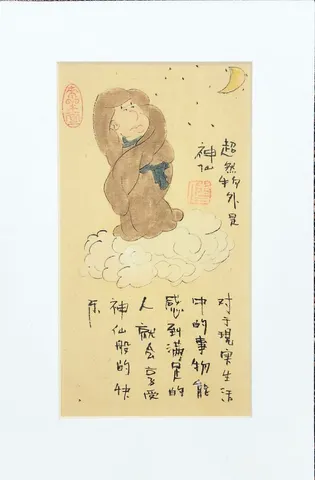 超然物外是
神仙
对于現実生活
中的事物能
感到滿足的
人就会享受
神仙般的快
乐